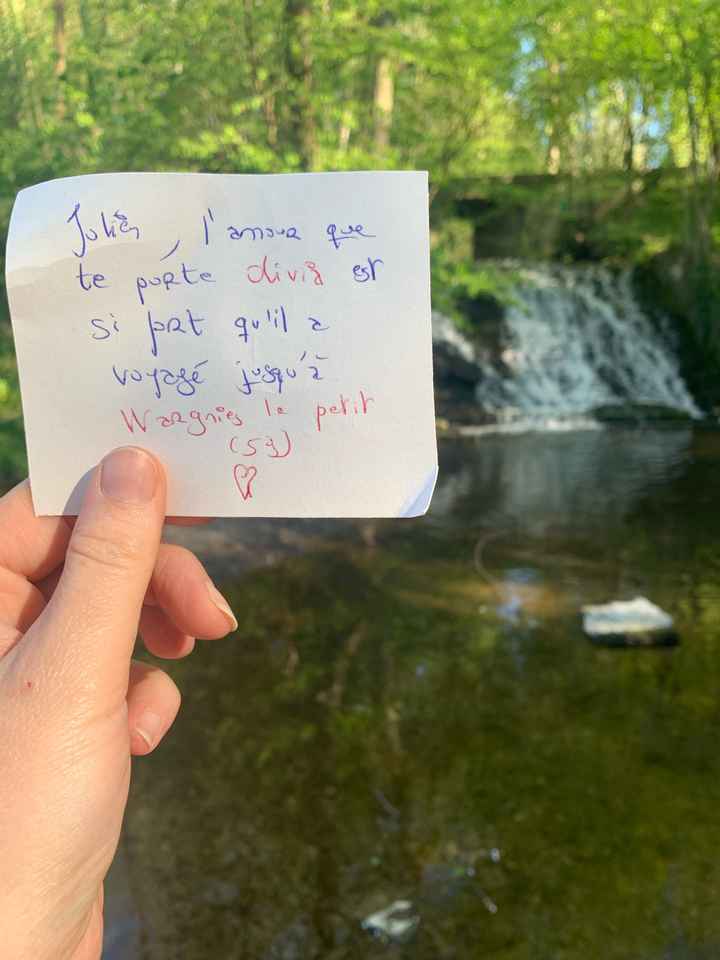 Julien, l'amour que
te porte Olivia est
si fort qu'il a
voyagé jusqu'à
Wargnies le petit
(59)